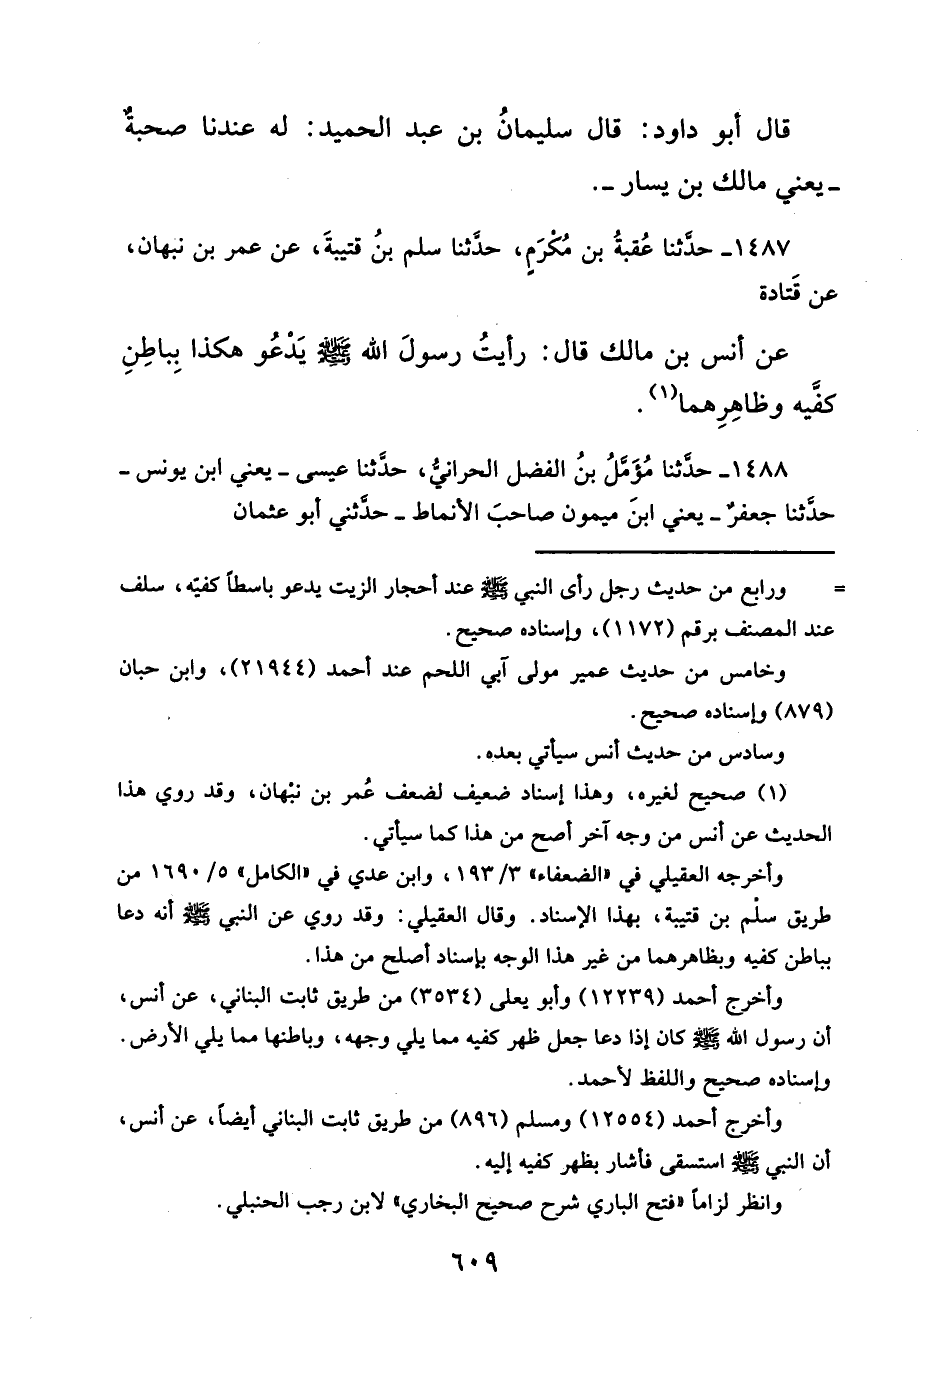 قال أبو داود: قال سليمانُ بن عبد الحميد: له عندنا صحبةٌ
ـ يعني مالك بن يسار ـ.
١٤٨٧ـ حدَّثنا عُقبةُ بن مُكْرَمٍ، حدَّثنا سلم بنُ قتيبةَ، عن عمر بن نبهان،
عن قَتادة
عن أنس بن مالك قال: رأيتُ رسولَ الله ﷺ يَدْعُو هكذا بِباطِنِ
كفَّيه وظاهِرِهما(١).
١٤٨٨ـ حدَّثنا مُؤَمَّلُ بنُ الفضل الحرانيُّ، حدَّثنا عيسى ـ يعني ابن يونس ـ
حدَّثنا جعفرٌ ـ يعني ابنَ ميمون صاحبَ الأنماط ـ حدَّثني أبو عثمان
= ورابع من حديث رجل رأى النبي ﷺ عند أحجار الزيت يدعو باسطاً كفيّه، سلف
عند المصنف برقم (١١٧٢)، وإسناده صحيح.
وخامس من حديث عمير مولى آبي اللحم عند أحمد (٢١٩٤٤)، وابن حبان
(٨٧٩) وإسناده صحيح.
وسادس من حديث أنس سيأتي بعده.
(١) صحيح لغيره، وهذا إسناد ضعيف لضعف عُمر بن نبْهان، وقد روي هذا
الحديث عن أنس من وجه آخر أصح من هذا كما سيأتي.
وأخرجه العقيلي في «الضعفاء» ٣/ ١٩٣، وابن عدي في «الكامل» ٥/ ١٦٩٠ من
طريق سلْم بن قتيبة، بهذا الإسناد. وقال العقيلي: وقد روي عن النبي ﷺ أنه دعا
بباطن كفيه وبظاهرهما من غير هذا الوجه بإسناد أصلح من هذا.
وأخرج أحمد (١٢٢٣٩) وأبو يعلى (٣٥٣٤) من طريق ثابت البناني، عن أنس،
أن رسول الله ﷺ كان إذا دعا جعل ظهر كفيه مما يلي وجهه، وباطنها مما يلي الأرض.
وإسناده صحيح واللفظ لأحمد.
وأخرج أحمد (١٢٥٥٤) ومسلم (٨٩٦) من طريق ثابت البناني أيضاً، عن أنس،
أن النبي ﷺ استسقى فأشار بظهر كفيه إليه.
وانظر لزاماً «فتح الباري شرح صحيح البخاري» لابن رجب الحنبلي.
٦٠٩